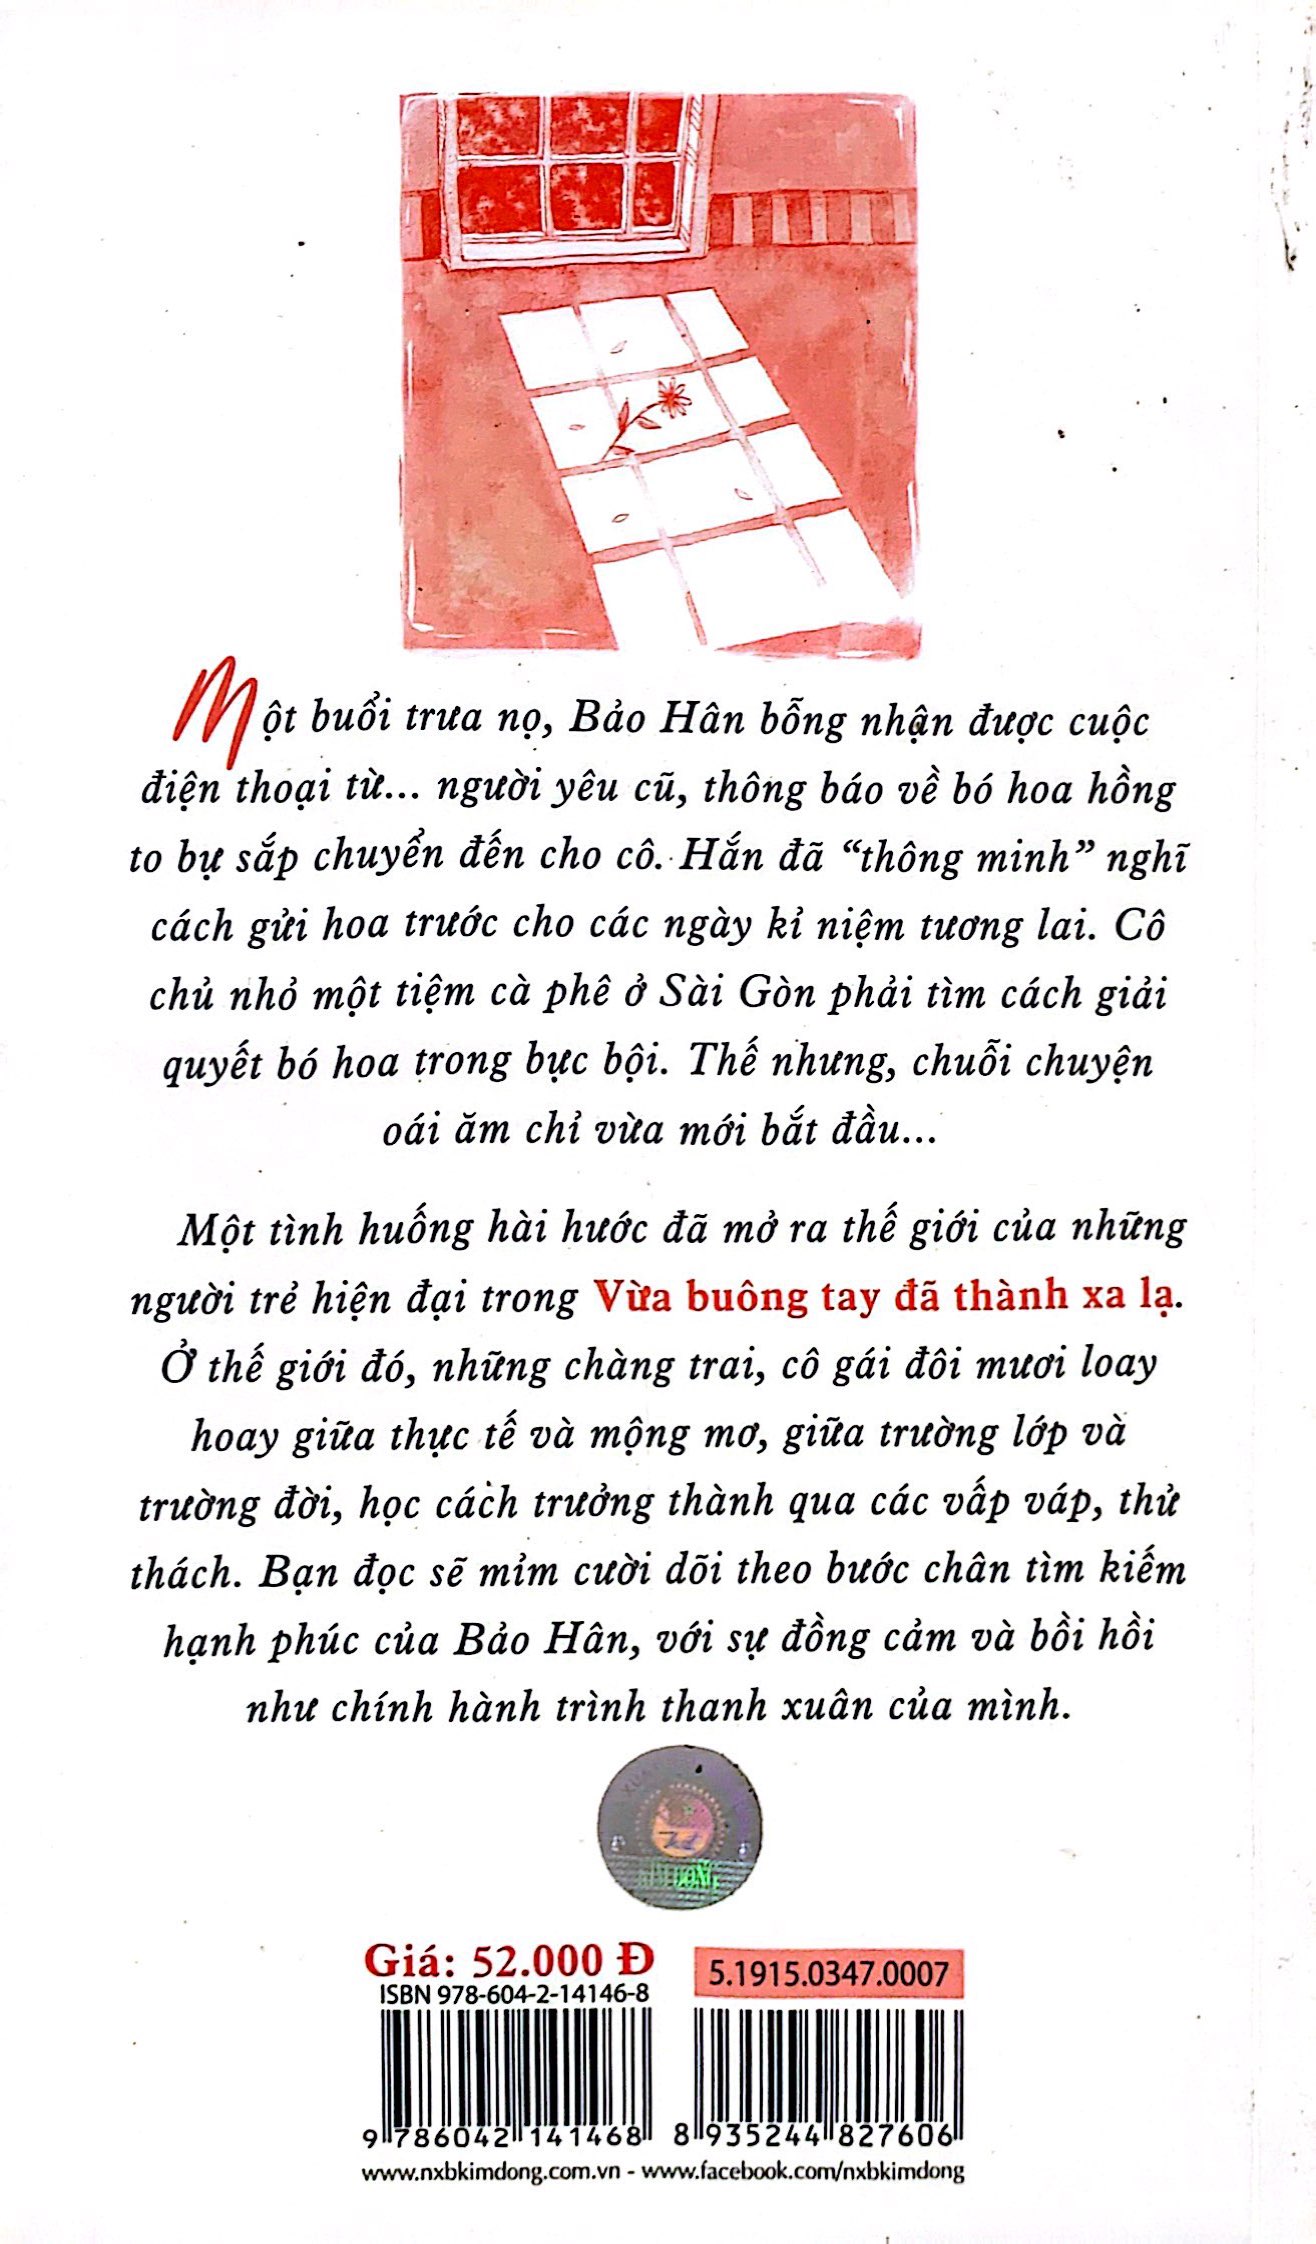 Một buổi trưa nọ, Bảo Hân bỗng nhận được cuộc
điện thoại từ... người yêu cũ, thông báo về bó hoa hồng
to bự sắp chuyển đến cho cô. Hắn đã “thông minh” nghĩ
cách gửi hoa trước cho các ngày kỉ niệm tương lai. Cô
chủ nhỏ một tiệm cà phê ở Sài Gòn phải tìm cách giải
quyết bó hoa trong bực bội. Thế nhưng, chuỗi chuyện
oái ăm chỉ vừa mới bắt đầu...
Một tình huống hài hước đã mở ra thế giới của những
người trẻ hiện đại trong Vừa buông tay đã thành xa lạ.
Ở thế giới đó, những chàng trai, cô gái đôi mươi loay
hoay giữa thực tế và mộng mơ, giữa trường lớp và
trường đời, học cách trưởng thành qua các vấp váp, thử
thách. Bạn đọc sẽ mỉm cười dõi theo bước chân tìm kiếm
hạnh phúc của Bảo Hân, với sự đồng cảm và bồi hồi
như chính hành trình thanh xuân của mình.
Giá: 52.000 Đ
ISBN 978-604-2-14146-8
9 786042 141468
5.1915.0347.0007
8 935244 827606
www.nxbkimdong.com.vn - www.facebook.com/nxbkimdong